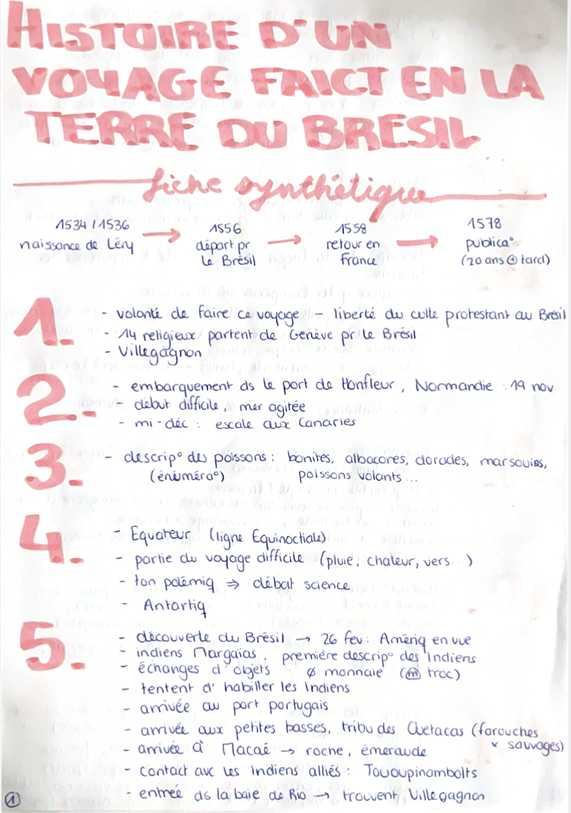 HISTOIRE D'UN
VOYAGE FAICT EN LA
TERRE DU BRESIL
fiche synthétique
1534 / 1536 → 1556 → 1558 → 1578
naissance de Léry départ pr retour en publica°
Le Brésil France (20 ans ⊕ tard)
1. - volonté de faire ce voyage - liberté du culte protestant au Brésil
- 14 religieux partent de Genève pr le Brésil
- Villegagnon
2. - embarquement ds le port de Honfleur, Normandie : 19 nov
- début difficile, mer agitée
- mi-déc : escale aux Canaries
3. - descrip° des poissons : bonites, albacores, dorades, marsouins,
(énuméra°) poissons volants...
4. - Equateur (ligne Equinoctiale)
- partie du voyage difficile (pluie, chaleur, vers...)
- ton polémiq ⇒ débat science
- Antartiq
5. - découverte du Brésil → 26 fev : Amériq en vue
- indiens Margaias, première descrip° des Indiens
- échanges d'objets ø monnaie (m̂ troc)
- tentent d'habiller les Indiens
- arrivée au port portugais
- arrivée aux petites basses, tribu des Ouetacas (farouches
x sauvages)
- arrivée à Macaé → roche, émeraude
- contact avc les indiens alliés : Tououpinambolts
- entrée ds la baie de Rio → trouvent Villegagnon
1